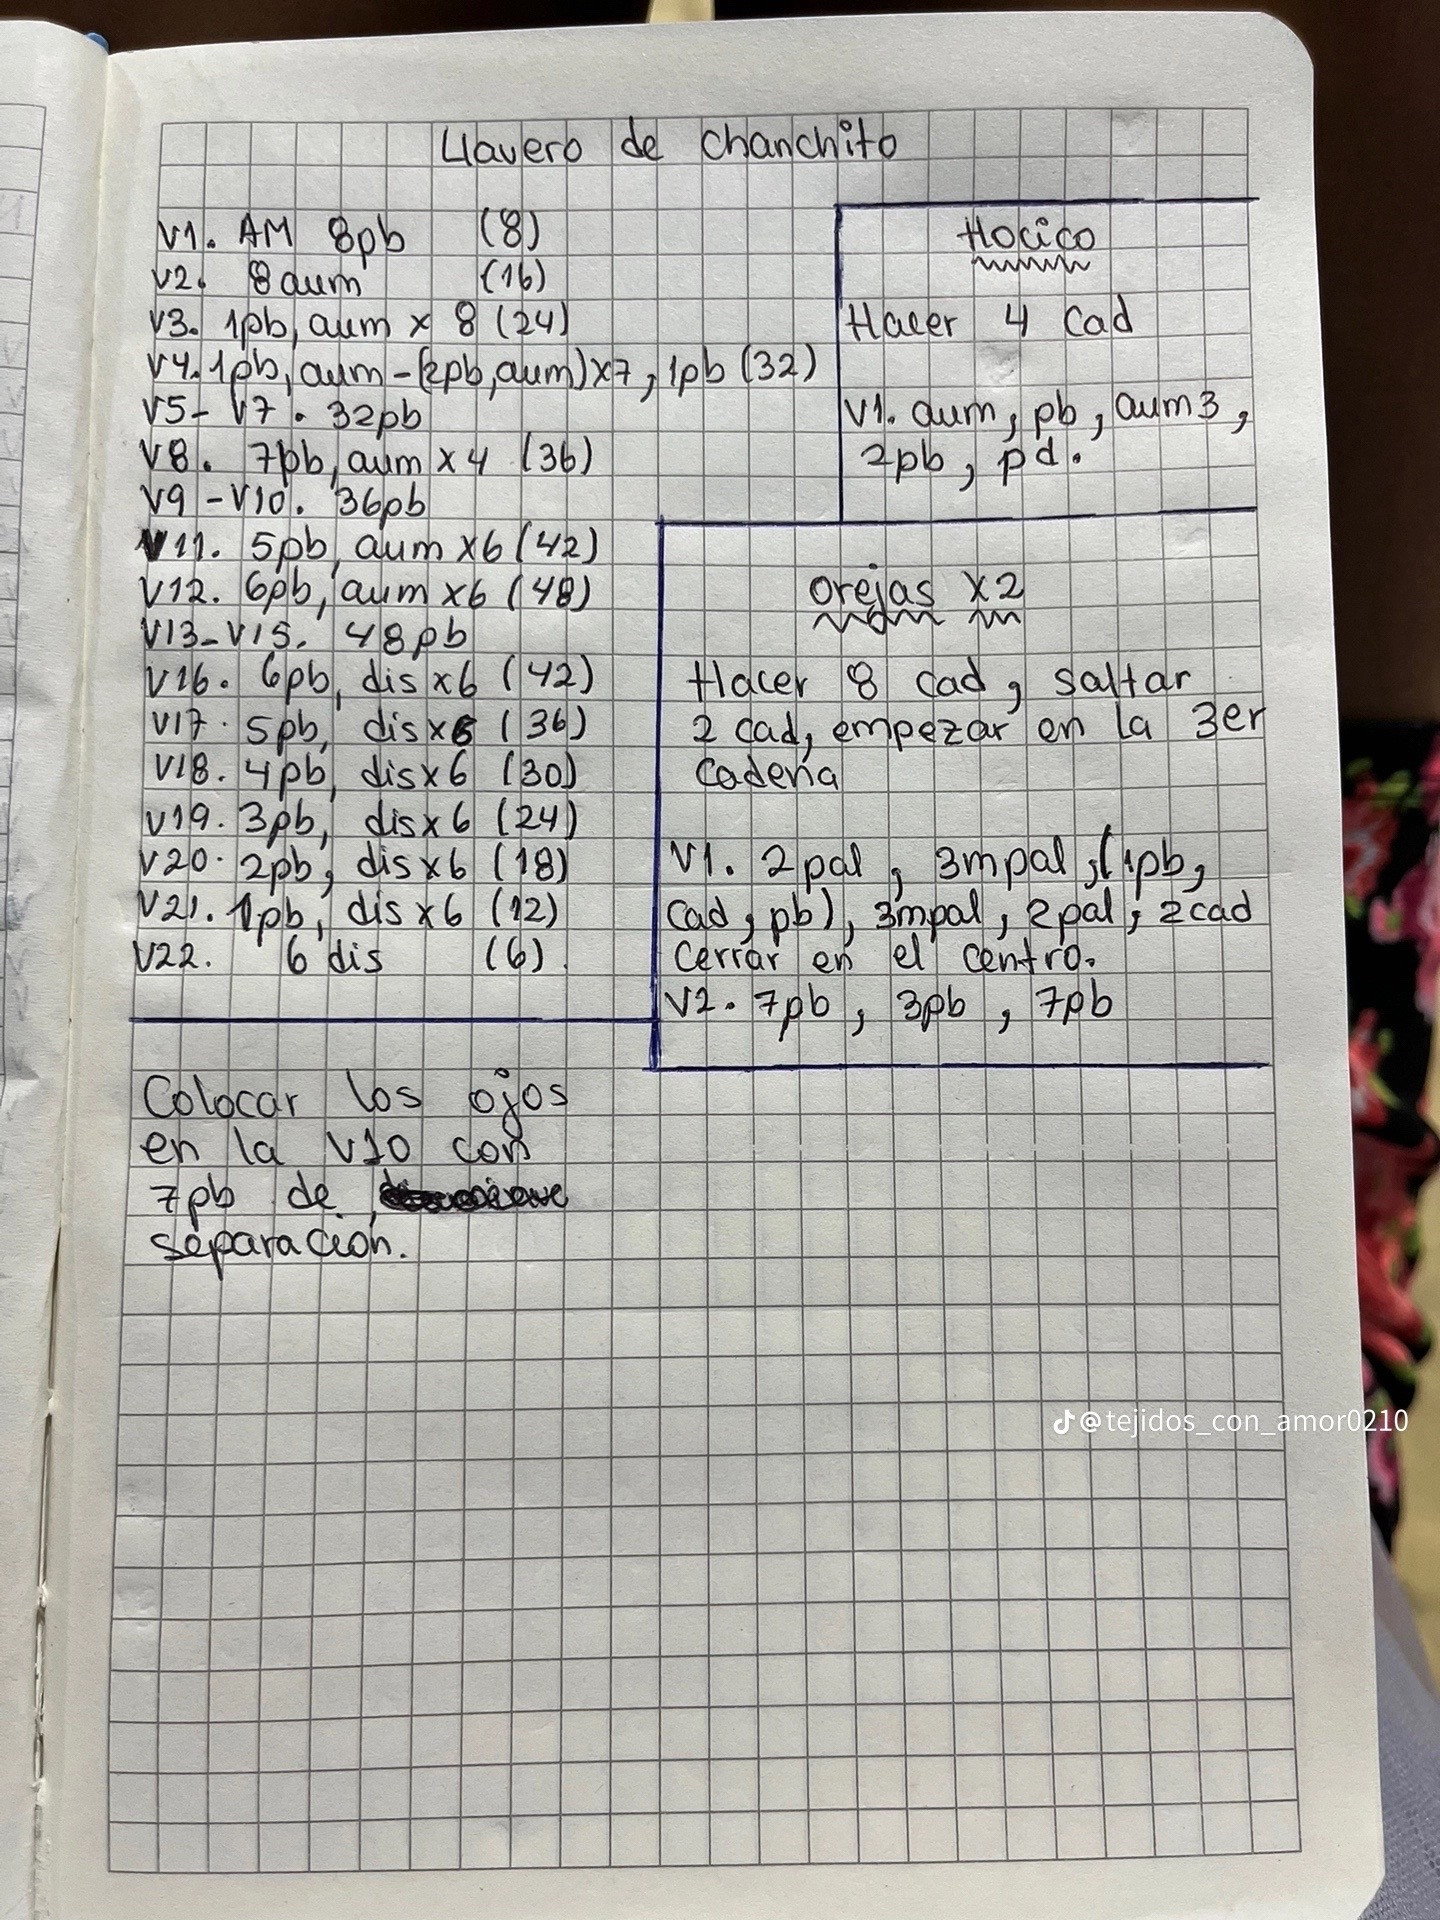 Llavero de chanchito
V1. AM 8pb (8)
V2. 8 aum (16)
V3. 1pb, aum x 8 (24)
V4. 1pb, aum - (2pb, aum) x7, 1pb (32)
V5 - V7. 32pb
V8. 7pb, aum x 4 (36)
V9 - V10. 36pb
V11. 5pb, aum x6 (42)
V12. 6pb, aum x6 (48)
V13 - V15. 48pb
V16. 6pb, dis x6 (42)
V17. 5pb, dis x6 (36)
V18. 4pb, dis x6 (30)
V19. 3pb, dis x6 (24)
V20. 2pb, dis x6 (18)
V21. 1pb, dis x6 (12)
V22. 6 dis (6)
Colocar los ojos
en la V10 con
7pb de
separación.
Hocico
Hacer 4 cad
V1. aum, pb, aum3,
2pb, pd.
Orejas x2
Hacer 8 cad, saltar
2 cad, empezar en la 3er
cadena
V1. 2pal, 3mpal, (1pb,
cad, pb), 3mpal, 2pal, 2cad
cerrar en el centro.
V2. 7pb, 3pb, 7pb
@tejidos_con_amor0210